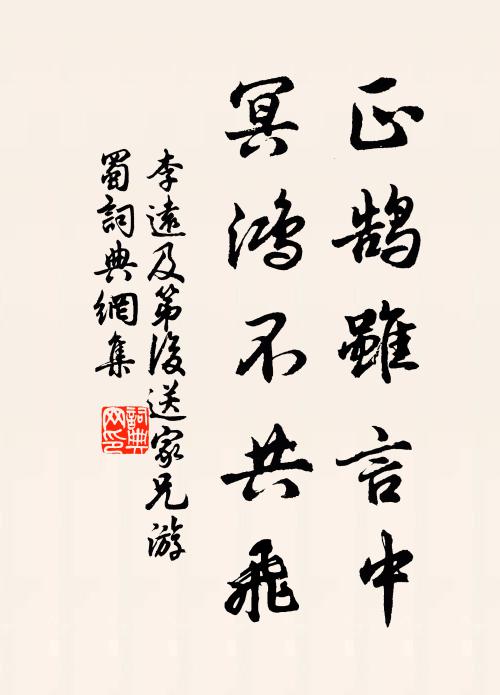 正鵠雖言中
冥鴻不共飛
李遠及第後送家兄游
蜀詞典網集
詞典
网印